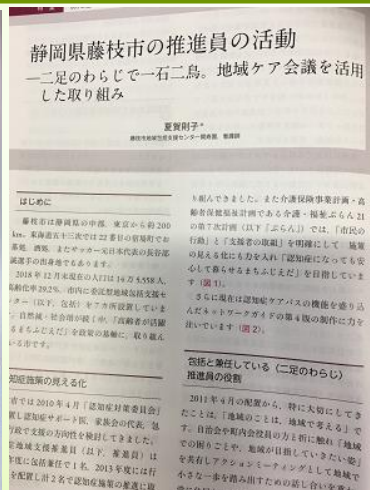 静岡県藤枝市の推進員の活動
―二足のわらじで一石二鳥。地域ケア会議を活用
した取り組み
夏賀則子*
はじめに
藤枝市は静岡県の中部、東京から約200
km、東海道五十三次では22番目の宿場町でお
茶処、酒処、またサッカー元日本代表の長谷部
誠選手の出身地でもあります。
2018年12月末現在の人口は14万5,558人、
高齢化率29.2%、市内に委託型地域包括支援セ
ンター（以下、包括）を7カ所設置していま
自然減・社会増が続く中、「高齢者が活躍
るまちふじえだ」を政策の基軸に、取り組ん
いる市です。
知症施策の見える化
市では2010年4月「認知症対策委員会」
置し認知症サポート医、家族会の代表、包
行政で支援の方向性を検討してきました。
症地域支援推進員（以下、推進員）は
年度に包括兼任で1名、2013年度には行
を配置し計2名で認知症施策の推進に取
り組んできました。また介護保険事業計画・高
齢者保健福祉計画である介護・福祉ぷらん21
の第7次計画（以下「ぷらん」）では、「市民の
行動」と「支援者の取組」を明確にして、施策
の見える化にも力を入れ「認知症になっても安
心して暮らせるまちふじえだ」を目指していま
す（図1）。
さらに現在は認知症ケアパスの機能を盛り込
んだネットワークガイドの第4版の制作に力を
注いでいます（図2）。
包括と兼任している（二足のわらじ）
推進員の役割
2011年4月の配置から、特に大切にしてき
たことは、「地域のことは、地域で考える」で
す。自治会や町内会役員の方と折に触れ「地域
での困りごとや、地域が目指していきたい姿」
を共有しアクションミーティングとして地域で
小さな一歩を踏み出すための話し合いを重